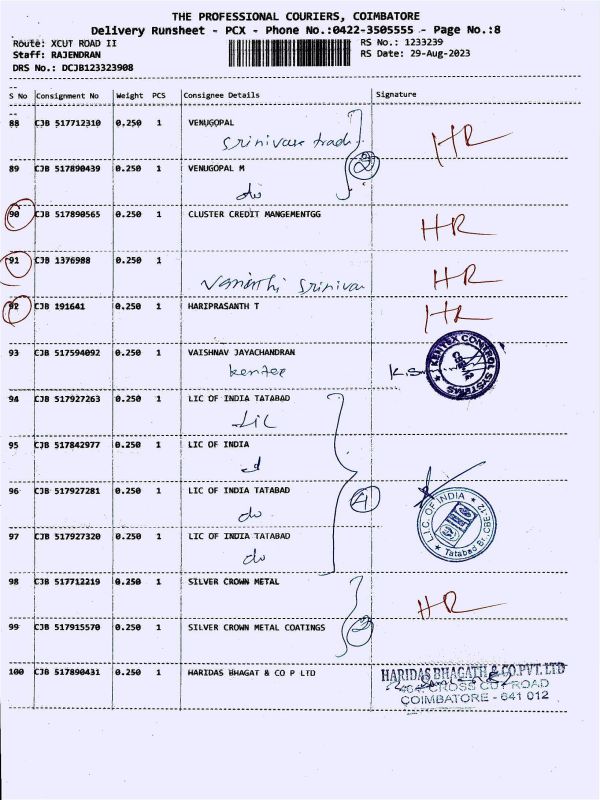 THE PROFESSIONAL COURIERS, COIMBATORE
Delivery Runsheet - PCX - Phone No.:0422-3505555 - Page No.:8
Route: XCUT ROAD II
RS No.: 1233239
Staff: RAJENDRAN
RS Date: 29-Aug-2023
DRS No.: DCJB123323908
S No Consignment No Weight PCS Consignee Details Signature
88 CJB 517712310 0.250 1 VENUGOPAL HR
Srinivasa
2
89 CJB 517890439 0.250 1 VENUGOPAL M
do
90 CJB 517890565 0.250 1 CLUSTER CREDIT MANGEMENTGG HR
91 CJB 1376988 0.250 1 HR
Vananthi Srinivas
92 CJB 191641 0.250 1 HARIPRASANTH T HR
93 CJB 517594092 0.250 1 VAISHNAV JAYACHANDRAN
Kentex K.S
KENTEX CONTROL SYSTEMS
94 CJB 517927263 0.250 1 LIC OF INDIA TATABAD
LIC
95 CJB 517842977 0.250 1 LIC OF INDIA
96 CJB 517927281 0.250 1 LIC OF INDIA TATABAD
do 4
L.I.C. OF INDIA
Tatabad Br., CBE-12
97 CJB 517927320 0.250 1 LIC OF INDIA TATABAD
do
98 CJB 517712219 0.250 1 SILVER CROWN METAL HR
99 CJB 517915570 0.250 1 SILVER CROWN METAL COATINGS
100 CJB 517890431 0.250 1 HARIDAS BHAGAT & CO P LTD
HARIDAS BHAGATH & CO.PVT. LTD
464, CROSS CUT ROAD
COIMBATORE - 641 012